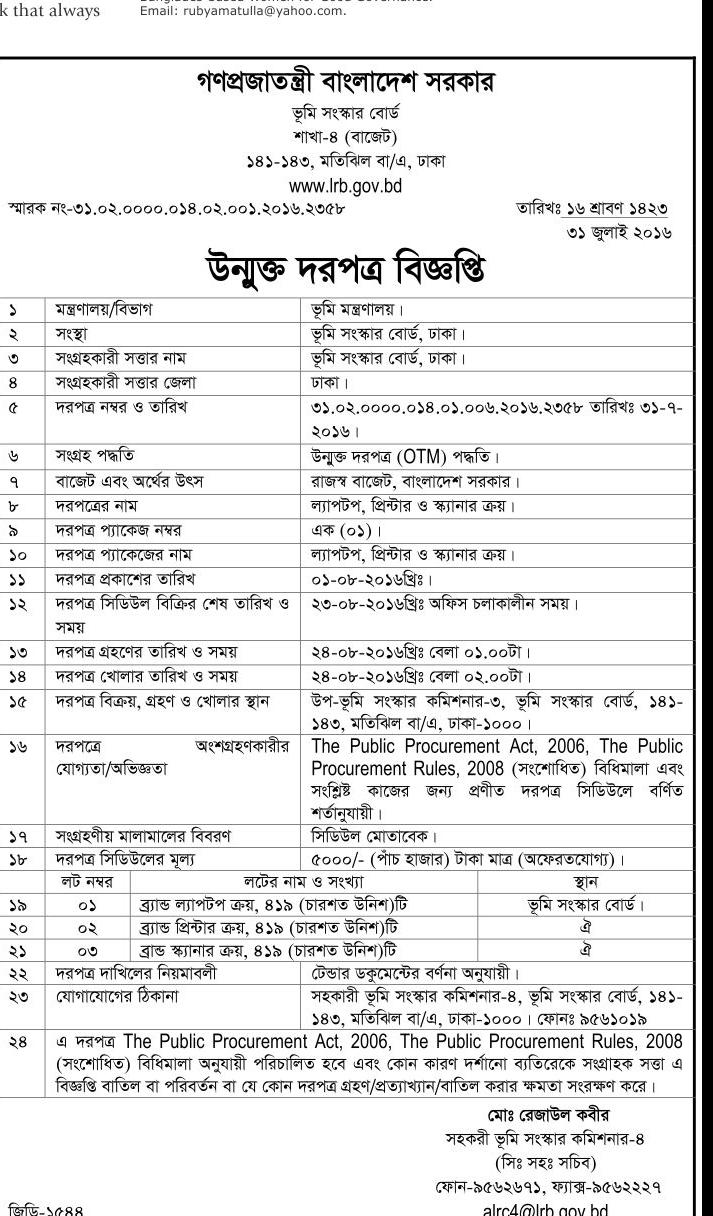 k that always
Email: rubyamatulla@yahoo.com.
গণপ্রজাতন্ত্রী বাংলাদেশ সরকার
ভূমি সংস্কার বোর্ড
শাখা-৪ (বাজেট)
১৪১-১৪৩, মতিঝিল বা/এ, ঢাকা
www.lrb.gov.bd
স্মারক নং-৩১.০২.০০০০.০১৪.০২.০০১.২০১৬.২৩৫৮ তারিখঃ ১৬ শ্রাবণ ১৪২৩
৩১ জুলাই ২০১৬
উন্মুক্ত দরপত্র বিজ্ঞপ্তি
১ মন্ত্রণালয়/বিভাগ ভূমি মন্ত্রণালয়।
২ সংস্থা ভূমি সংস্কার বোর্ড, ঢাকা।
৩ সংগ্রহকারী সত্তার নাম ভূমি সংস্কার বোর্ড, ঢাকা।
৪ সংগ্রহকারী সত্তার জেলা ঢাকা।
৫ দরপত্র নম্বর ও তারিখ ৩১.০২.০০০০.০১৪.০১.০০৬.২০১৬.২৩৫৮ তারিখঃ ৩১-৭-
২০১৬।
৬ সংগ্রহ পদ্ধতি উন্মুক্ত দরপত্র (OTM) পদ্ধতি।
৭ বাজেট এবং অর্থের উৎস রাজস্ব বাজেট, বাংলাদেশ সরকার।
৮ দরপত্রের নাম ল্যাপটপ, প্রিন্টার ও স্ক্যানার ক্রয়।
৯ দরপত্র প্যাকেজ নম্বর এক (০১)।
১০ দরপত্র প্যাকেজের নাম ল্যাপটপ, প্রিন্টার ও স্ক্যানার ক্রয়।
১১ দরপত্র প্রকাশের তারিখ ০১-০৮-২০১৬খ্রিঃ।
১২ দরপত্র সিডিউল বিক্রির শেষ তারিখ ও ২৩-০৮-২০১৬খ্রিঃ অফিস চলাকালীন সময়।
সময়
১৩ দরপত্র গ্রহণের তারিখ ও সময় ২৪-০৮-২০১৬খ্রিঃ বেলা ০১.০০টা।
১৪ দরপত্র খোলার তারিখ ও সময় ২৪-০৮-২০১৬খ্রিঃ বেলা ০২.০০টা।
১৫ দরপত্র বিক্রয়, গ্রহণ ও খোলার স্থান উপ-ভূমি সংস্কার কমিশনার-৩, ভূমি সংস্কার বোর্ড, ১৪১-
১৪৩, মতিঝিল বা/এ, ঢাকা-১০০০।
১৬ দরপত্রে অংশগ্রহণকারীর The Public Procurement Act, 2006, The Public
যোগ্যতা/অভিজ্ঞতা Procurement Rules, 2008 (সংশোধিত) বিধিমালা এবং
সংশ্লিষ্ট কাজের জন্য প্রণীত দরপত্র সিডিউলে বর্ণিত
শর্তানুযায়ী।
১৭ সংগ্রহণীয় মালামালের বিবরণ সিডিউল মোতাবেক।
১৮ দরপত্র সিডিউলের মূল্য ৫০০০/- (পাঁচ হাজার) টাকা মাত্র (অফেরতযোগ্য)।
লট নম্বর লটের নাম ও সংখ্যা স্থান
১৯ ০১ ব্র্যান্ড ল্যাপটপ ক্রয়, ৪১৯ (চারশত উনিশ)টি ভূমি সংস্কার বোর্ড।
২০ ০২ ব্র্যান্ড প্রিন্টার ক্রয়, ৪১৯ (চারশত উনিশ)টি ঐ
২১ ০৩ ব্রান্ড স্ক্যানার ক্রয়, ৪১৯ (চারশত উনিশ)টি ঐ
২২ দরপত্র দাখিলের নিয়মাবলী টেন্ডার ডকুমেন্টের বর্ণনা অনুযায়ী।
২৩ যোগাযোগের ঠিকানা সহকারী ভূমি সংস্কার কমিশনার-৪, ভূমি সংস্কার বোর্ড, ১৪১-
১৪৩, মতিঝিল বা/এ, ঢাকা-১০০০। ফোনঃ ৯৫৬১০১৯
২৪ এ দরপত্র The Public Procurement Act, 2006, The Public Procurement Rules, 2008
(সংশোধিত) বিধিমালা অনুযায়ী পরিচালিত হবে এবং কোন কারণ দর্শানো ব্যতিরেকে সংগ্রাহক সত্তা এ
বিজ্ঞপ্তি বাতিল বা পরিবর্তন বা যে কোন দরপত্র গ্রহণ/প্রত্যাখ্যান/বাতিল করার ক্ষমতা সংরক্ষণ করে।
মোঃ রেজাউল কবীর
সহকরী ভূমি সংস্কার কমিশনার-৪
(সিঃ সহঃ সচিব)
ফোন-৯৫৬২৬৭১, ফ্যাক্স-৯৫৬২২২৭
জিডি-১৫৪৪ alrc4@lrb.gov.bd